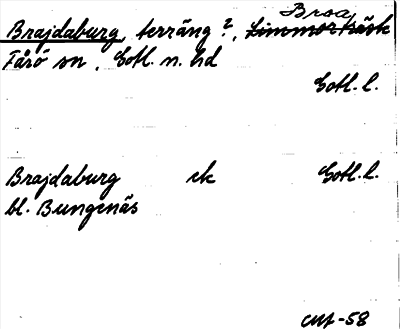 Broa
Brajdaburg, terräng?, Limmorträsk
Fårö sn, Gotl. n. hd
Gotl. l.
Brajdaburg ek Gotl. l.
bl. Bungenäs